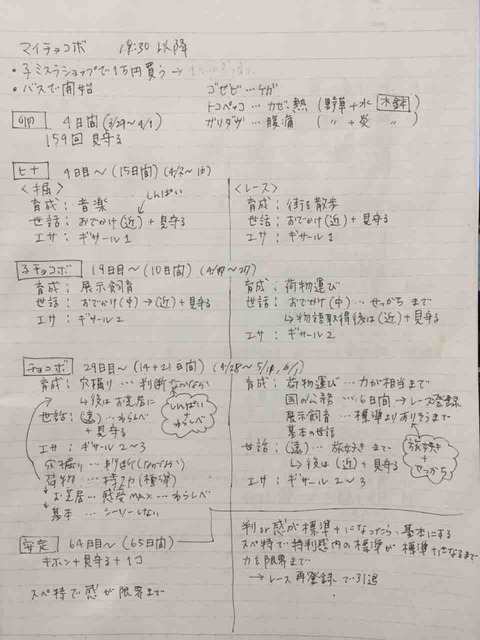 マイチョコボ 19:30 以降
・チミスラショップで1万円買う→
・バスで開始 ゴゼビ…ケガ
トコペッコ…カゼ、熱 (野草+水 木鉢)
ガリダザ…腹痛 (〃+炎 〃)
卵 4日間 (3/29~4/1)
159回 見守る
ヒナ 4日目~ (15日間)
<掘> しんぱい
育成:音楽
世話:おでかけ(近)+見守る
エサ:ギサール1
<レース>
育成:街を散歩
世話:おでかけ(近)+見守る
エサ:ギサール1
子チョコボ 19日目~(10日間)
育成:展示飼育
世話:おでかけ(中)→(近)+見守る
エサ:ギサール2
育成:荷物運び
世話:おでかけ(中)…せっかちまで
↳物語取得後は(近)+見守る
エサ:ギサール2
チョコボ 29日目~(14+21日間)
育成:穴掘り…判断
↳後はお芝居に
世話:(遠)…わらべ
+見守る
しんぱい + わらべ
エサ:ギサール2~3
穴掘り…
荷物…持久力(標準)
お芝居…感受MAX…わらべ
基本…シーソーしない
育成:荷物運び…力が相当まで
国の公務…6日間→レース登録
展示飼育…標準よりありそうまで
基本の世話
世話:(遠)…旅好きまで
↳後は(近)+見守る
旅好き + せっかち
エサ:ギサール2~3
安定 64日目~(65日間)
キホン+見守る+1コ
スペ特で感が限界まで
判or感が標準+になったら、基本にする
スペ特で特判感内の標準が標準+になるまで
力を限界まで
→レース再登録で引退